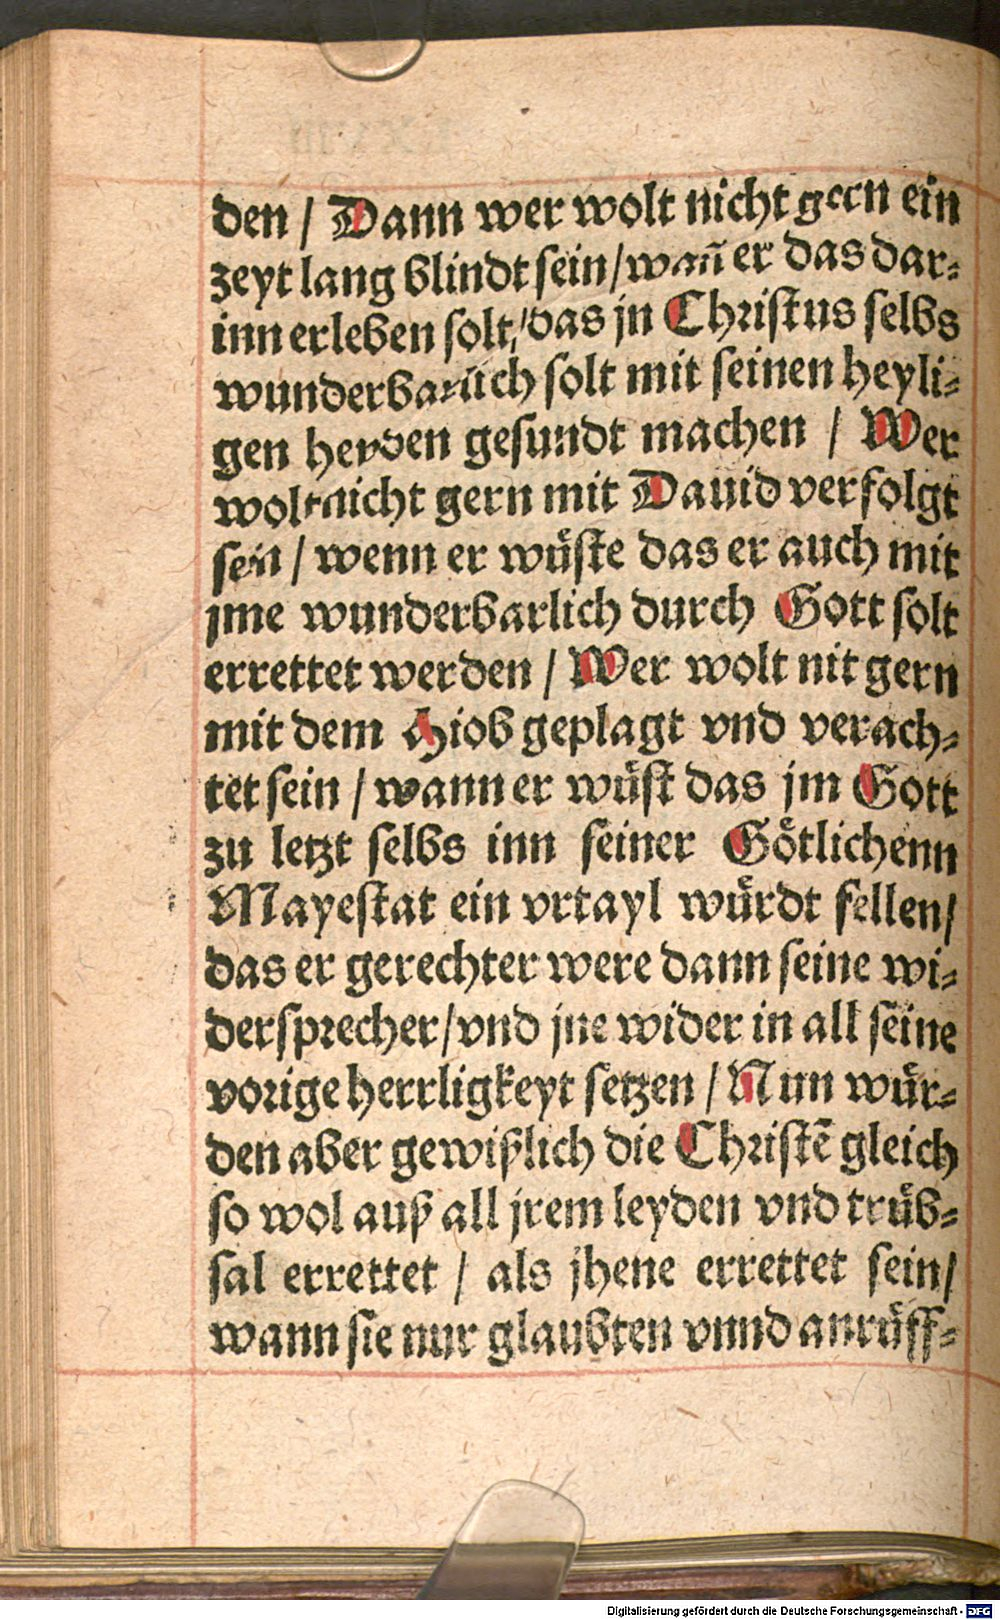 den / Dann wer wolt nicht gern ein
zeyt lang blindt sein / wañ er das dar⸗
inn erleben solt / das jn Christus selbs
wunderbarlich solt mit seinen heyli⸗
gen heyden gesundt machen / Wer
wolt nicht gern mit Dauid verfolgt
sein / wenn er wuͤste das er auch mit
jme wunderbarlich durch Gott solt
errettet werden / Wer wolt nit gern
mit dem Hiob geplagt vnd verach⸗
tet sein / wann er wuͤst das jm Gott
zu letzt selbs inn seiner Goͤtlichenn
Mayestat ein vrtayl wuͤrdt fellen /
das er gerechter were dann seine wi⸗
dersprecher / vnd jne wider in all seine
vorige herrligkeyt setzen / Nun wuͤr⸗
den aber gewißlich die Christẽ gleich
so wol auß all jrem leyden vnd truͤb⸗
sal errettet / als jhene errettet sein /
wann sie nur glaubten vnnd anruͤff⸗
Digitalisierung gefördert durch die Deutsche Forschungsgemeinschaft - DFG